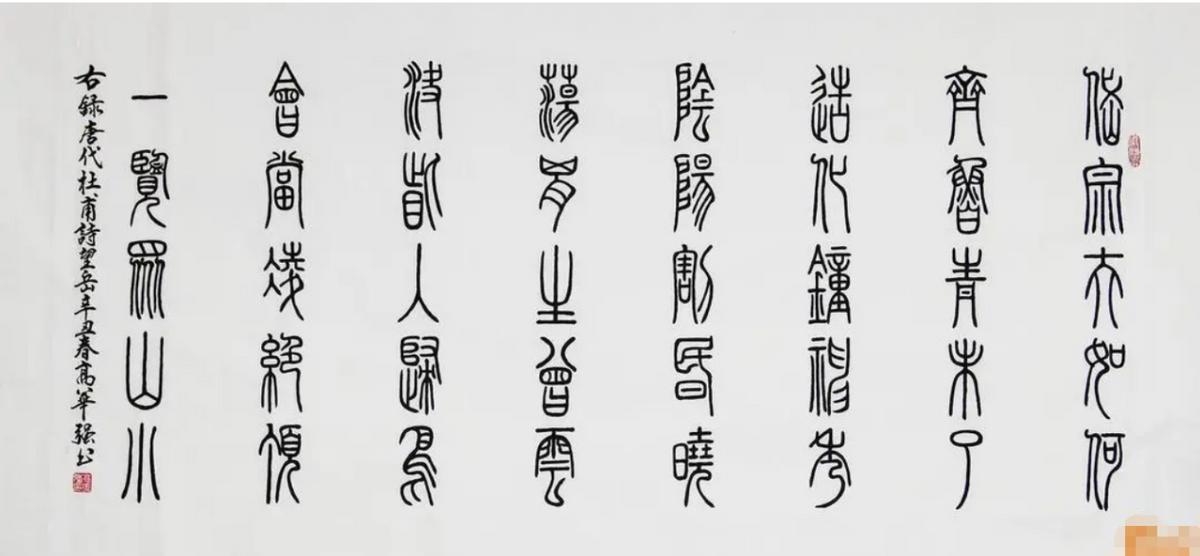 岱宗夫如何
齊魯青未了
造化鐘神秀
陰陽割昏曉
蕩胸生曾雲
決眥入歸鳥
會當凌絕頂
一覽眾山小
右録唐代杜甫詩望岳辛丑春高華强书